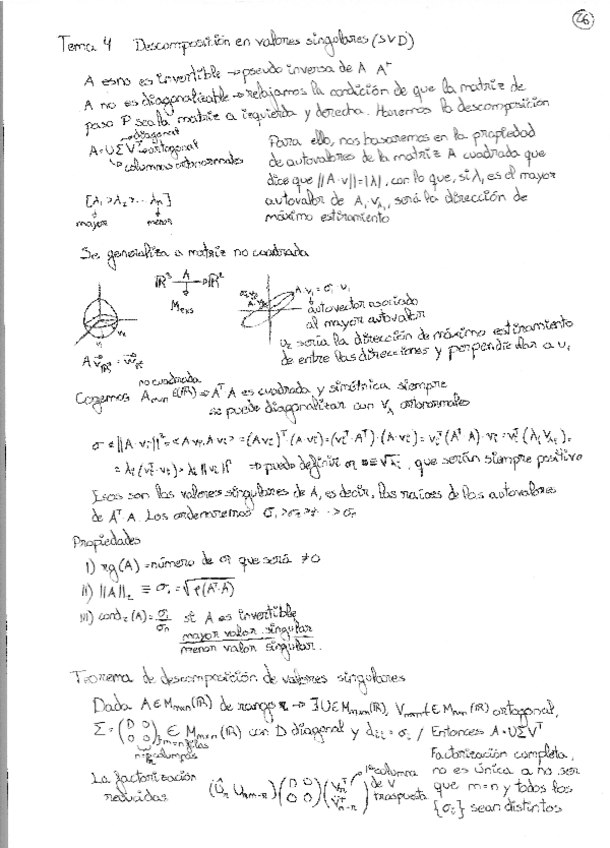 26
Tema 4 Descomposición en valores singulares (SVD)
A es no es invertible → pseudo inversa de A A⁺
A no es diagonalizable → relajamos la condición de que la matriz de
paso P sea la matriz a izquierda y derecha. Haremos la descomposición
diagonal
A=UΣVᵀ → ortogonal
columnas ortonormales
Para ello, nos basaremos en la propiedad
de autovalores de la matriz A cuadrada que
dice que ||A·v||=|λ|, con lo que, si λ₁ es el mayor
autovalor de A, v_λ₁, será la dirección de
máximo estiramiento
[λ₁ > λ₂ > ... λₙ]
mayor menor
Se generaliza a matriz no cuadrada
ℝ³ A → ℝ²
A·v₁ = σ₁·u₁
autovector asociado
al mayor autovalor
u₂ sería la dirección de máximo estiramiento
de entre las direcciones y perpendicular a u₁
no cuadrada
Cogemos A ∈ (ℝ) → AᵀA es cuadrada y simétrica siempre
se puede diagonalizar con V_λ ortonormales
||A·vᵢ||² = <Avᵢ, Avᵢ> = (Avᵢ)ᵀ·(A·vᵢ) = (vᵢᵀ·Aᵀ)·(A·vᵢ) = vᵢᵀ(AᵀA)·vᵢ = vᵢᵀ(λᵢvᵢ) =
= λᵢ(vᵢᵀ·vᵢ) = λᵢ||vᵢ||² → puedo definir σᵢ ≡ √λᵢ, que serán siempre positivo
Esos son los valores singulares de A, es decir, las raíces de los autovalores
de AᵀA. Los ordenaremos σ₁ > σ₂ > ... > σₙ
Propiedades
I) rg(A) = número de σᵢ que será ≠0
II) ||A||₂ ≡ σ₁ = √ρ(Aᵀ·A)
III) cond₂(A) = σ₁/σₙ si A es invertible
mayor valor singular
menor valor singular.
Teorema de descomposición de valores singulares
Dada A∈Mₘₓₙ(ℝ) de rango r → ∃ U∈Mₘₓₘ(ℝ), V ∈ Mₙₓₙ(ℝ) ortogonal,
Σ = (D 0 / 0 0) ∈ Mₘₓₙ(ℝ) con D diagonal y dᵢᵢ = σᵢ / Entonces A=UΣVᵀ
filas
columnas
Factorización completa,
no es única a no ser
que m=n y todos los
{σᵢ} sean distintos
La factorización
reducidas
(D 0 / 0 0)
columna
de V
traspuesta